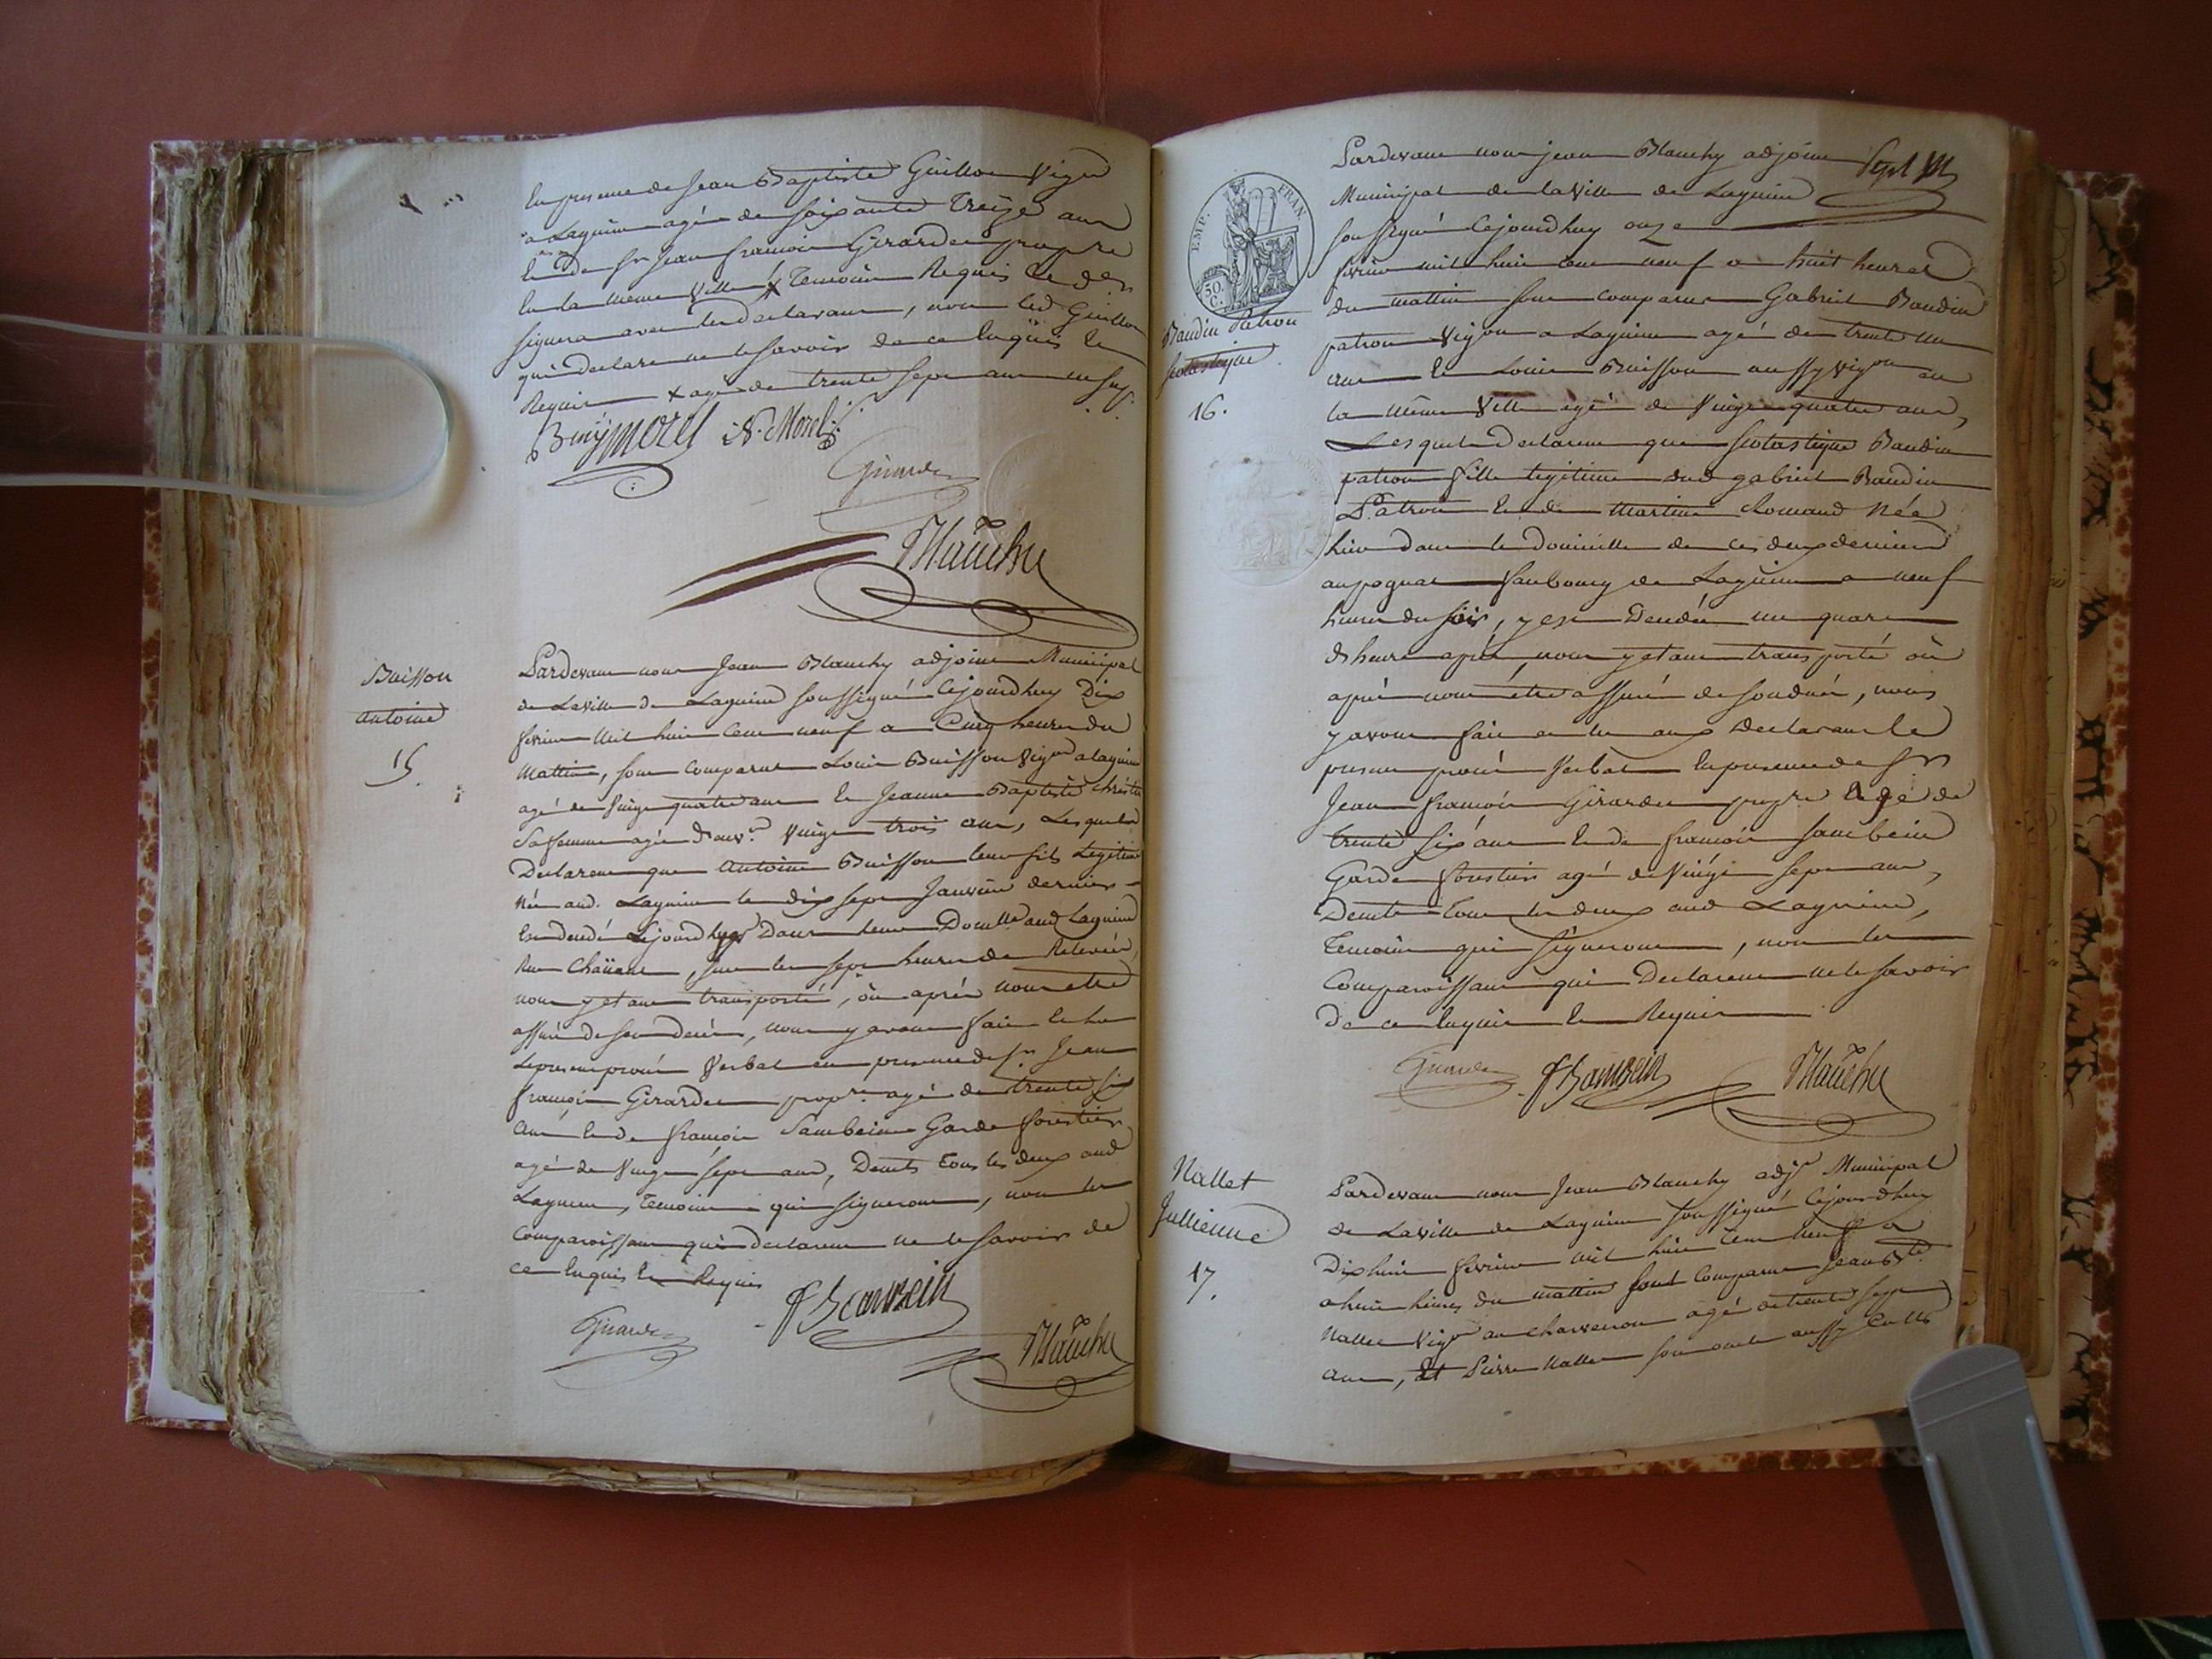 En presence de Jean Baptiste Guillon Vign
a Lagnieu agé de soixante Treize ans
Et de sr Jean francois Girardet propre
En la meme Ville X Temoins Requis Le dr
signera avec les declarans, non led Guillon
qui Declare ne le savoir de ce Enquis Et
Requis X agé de trente sept ans
Morel Morel
Girardet
Blanchy
Buisson
antoine
15.
Pardevant nous Jean Blanchy adjoint Municipal
de Laville de Lagnieu soussigné Cejourdhuy Dix
fevrier Mil huit Cent neuf a Cinq heures du
Mattin, sont Comparus Louis Buisson Vign a Lagnieu
agé de Vingt quatre ans Et Jeanne Baptiste
Sa femme agée d'env.n Vingt trois ans, Lesquels
Declarent que Antoine Buisson leur fils Legitime
Né aud. Lagnieu le dix sept Janvier dernier
Est Decedé Cejourdhuy Dans leur Domlle aud Lagnieu
Rue, sur les sept heures de Relevée,
nous y etant transporté, où après nous etre
assuré de son decès, nous y avons fait Et lu
Le present procès Verbal en presence de sr Jean
francois Girardet propre agé de trente six
ans Et de francois Sambein Garde forestier
agé de Vingt sept ans, Demts tous les deux aud
Lagnieu, Temoins qui signeront, non les
Comparoissans qui declarent ne le savoir de
ce Enquis Et Requis
Girardet
Blanchy
EMP. FRAN.
50. C.
Sept
Baudin Patron
scolastique
16.
Pardevant nous jean Blanchy adjoint
Municipal de la Ville de Lagnieu
soussigné Cejourdhuy onze
fevrier mil huit cent neuf a huit heures
du mattin sont comparus Gabriel Baudin
patron Vignon a Lagnieu agé de trente un
ans Et Louis Buisson aussy vignon en
la même Ville agé de Vingt quatre ans,
Lesquels Declarent que scolastique Baudin
patron fille legitime dud gabriel Baudin
Patron Et de Martine Romand Née
hier dans le Domicille de ces deux derniers
au faubourg de Lagnieu a neuf
heures du soir, y est Decedée un quart
d'heure après, nous y etant transporté où
après nous être assuré de son decès, nous
y avons fait et lu aux Declarans le
present procès Verbal En presence de sr
Jean francois Girardet propre Agé de
trente six ans Et de francois Sambein
Garde forestier agé de Vingt sept ans,
Demts Tous les deux aud Lagnieu,
Temoins qui signeront, non les
Comparoissans qui Declarent ne le savoir
de ce Enquis Et Requis
Girardet
Blanchy
Nallet
Jullienne
17.
Pardevant nous Jean Blanchy adjt Municipal
de LaVille de Lagnieu soussigné Cejourdhuy
Dix huit fevrier mil huit Cent Neuf a
a huit heures du mattin sont Comparus Jean Bte
Nallet Vign au agé de trente sept
ans, Et Pierre Nallet son oncle aussy